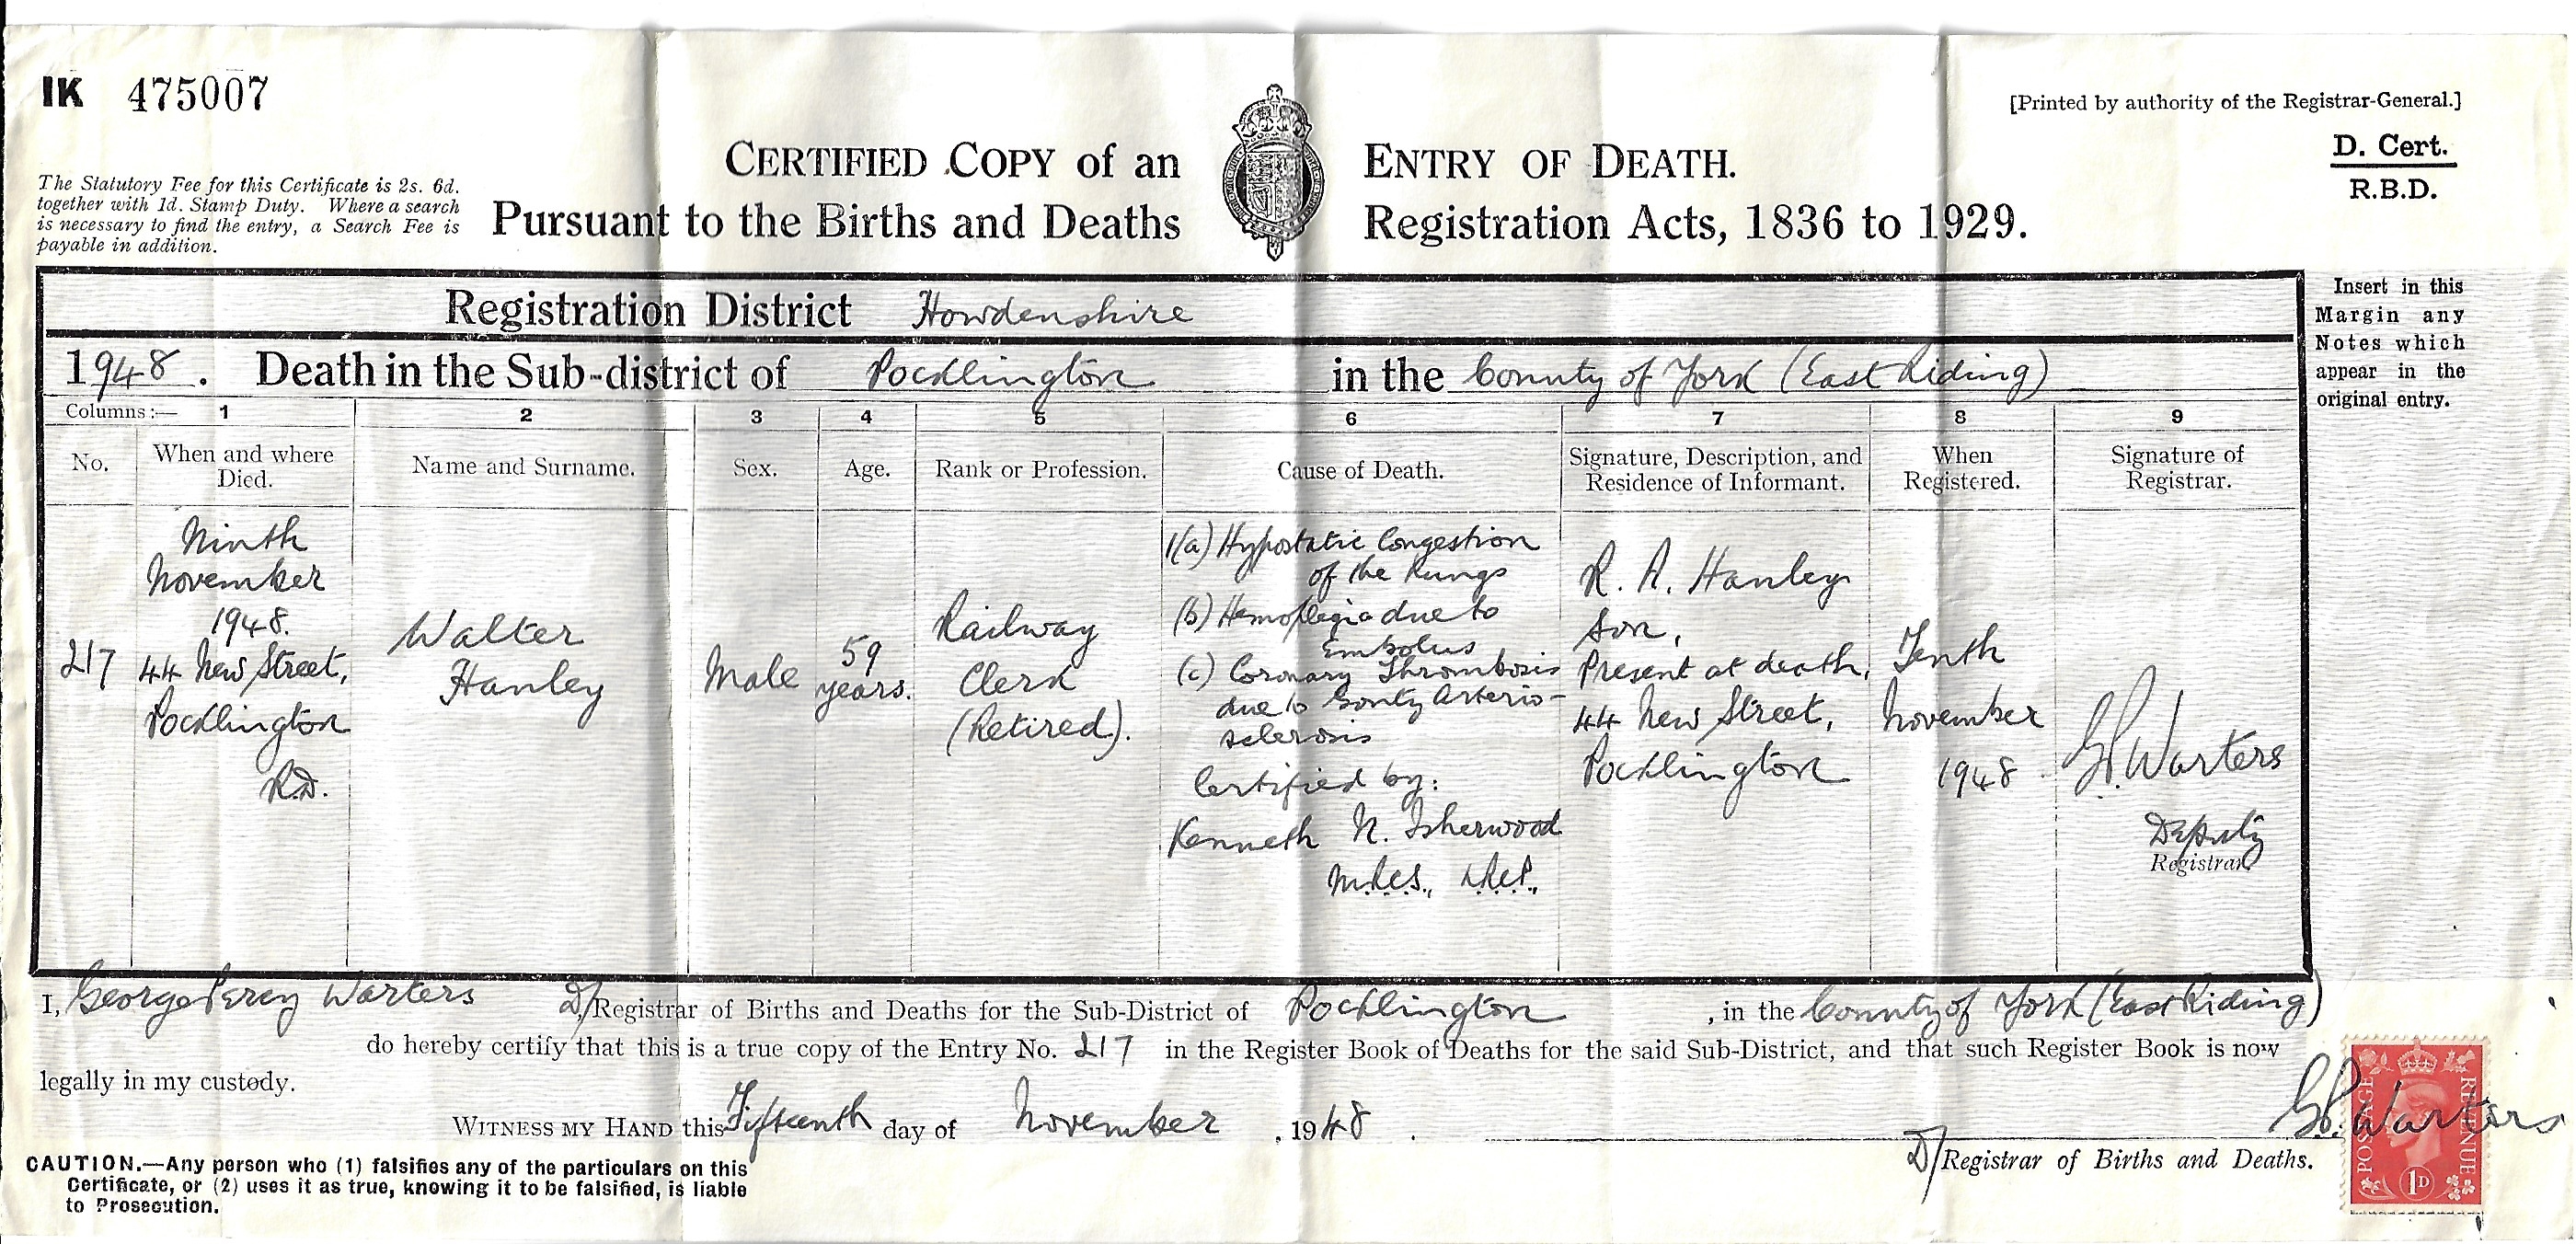 IK 475007
[Printed by authority of the Registrar-General.]
D. Cert.
R.B.D.
The Statutory Fee for this Certificate is 2s. 6d.
together with 1d. Stamp Duty. Where a search
is necessary to find the entry, a Search Fee is
payable in addition.
CERTIFIED COPY of an ENTRY OF DEATH.
Pursuant to the Births and Deaths Registration Acts, 1836 to 1929.
Insert in this
Margin any
Notes which
appear in the
original entry.
Registration District Howdenshire
1948. Death in the Sub-district of Pocklington in the County of York (East Riding)
Columns:— 1 2 3 4 5 6 7 8 9
No.
When and where
Died.
Name and Surname.
Sex.
Age.
Rank or Profession.
Cause of Death.
Signature, Description, and
Residence of Informant.
When
Registered.
Signature of
Registrar.
217
Ninth
November
1948.
44 New Street,
Pocklington
R.D.
Walter
Hanley
Male
59
years.
Railway
Clerk
(Retired).
1(a) Hypostatic Congestion
of the Lungs
(b) Hemoplegia due to
Embolus
(c) Coronary Thrombosis
due to Gouty Arterio-
sclerosis
Certified by:
Kenneth N. Isherwood
M.R.C.S., L.R.C.P.,
R. A. Hanley
Son,
Present at death,
44 New Street,
Pocklington
Tenth
November
1948
G.P. Warters
Deputy
Registrar
I, George Percy Warters D/Registrar of Births and Deaths for the Sub-District of Pocklington, in the County of York (East Riding)
do hereby certify that this is a true copy of the Entry No. 217 in the Register Book of Deaths for the said Sub-District, and that such Register Book is now
legally in my custody.
WITNESS MY HAND this Fifteenth day of November, 1948.
G.P. Warters
D/Registrar of Births and Deaths.
CAUTION.—Any person who (1) falsifies any of the particulars on this
Certificate, or (2) uses it as true, knowing it to be falsified, is liable
to Prosecution.
POSTAGE
REVENUE
1D